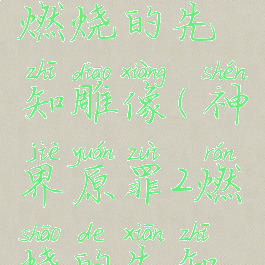 燃烧的先
zhī diāo xiàng shén
知雕像(神
jiè yuán zuì rán
界原罪2燃
shāo de xiān zhī
烧的先知